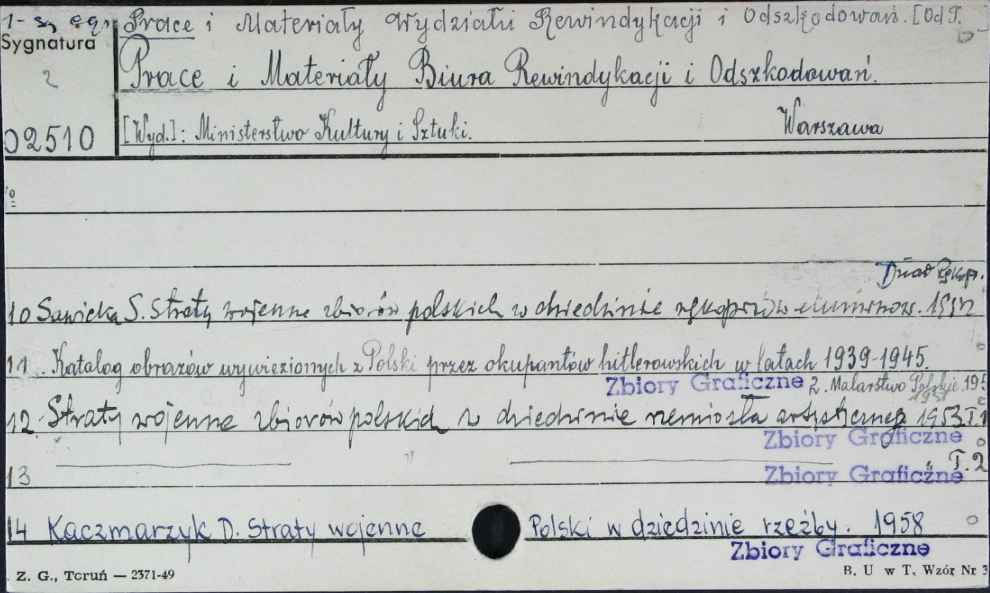 Prace i Materiały Wydziału Rewindykacji i Odszkodowań. [Od T.
Sygnatura
2
Prace i Materiały Biura Rewindykacji i Odszkodowań.
02510
[Wyd.]: Ministerstwo Kultury i Sztuki. Warszawa
Dział Rękop.
10 Sawicka S. Straty wojenne zbiorów polskich w dziedzinie rękopisów iluminow. 1952
11. Katalog obrazów wywiezionych z Polski przez okupantów hitlerowskich w latach 1939-1945.
Zbiory Graficzne 2. Malarstwo Polskie 195
1951
12. Straty wojenne zbiorów polskich w dziedzinie rzemiosła artystycznego 1953 T.1
Zbiory Graficzne
13 " " T.2
Zbiory Graficzne
14 Kaczmarzyk D. Straty wojenne Polski w dziedzinie rzeźby. 1958
Zbiory Graficzne
Z. G., Toruń — 2371-49 B. U w T. Wzór Nr 3